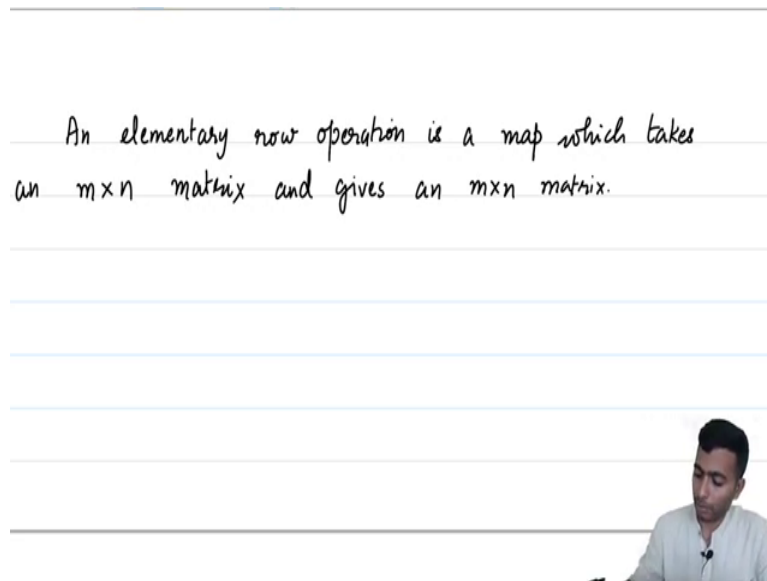 An elementary row operation is a map which takes
an m×n matrix and gives an m×n matrix.